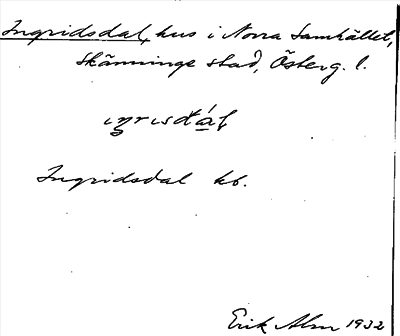 Ingridsdal, hus i Norra Samhället,
Skänninge stad, Österg. l.
Ingridsdal kb.
Erik Alm 1932